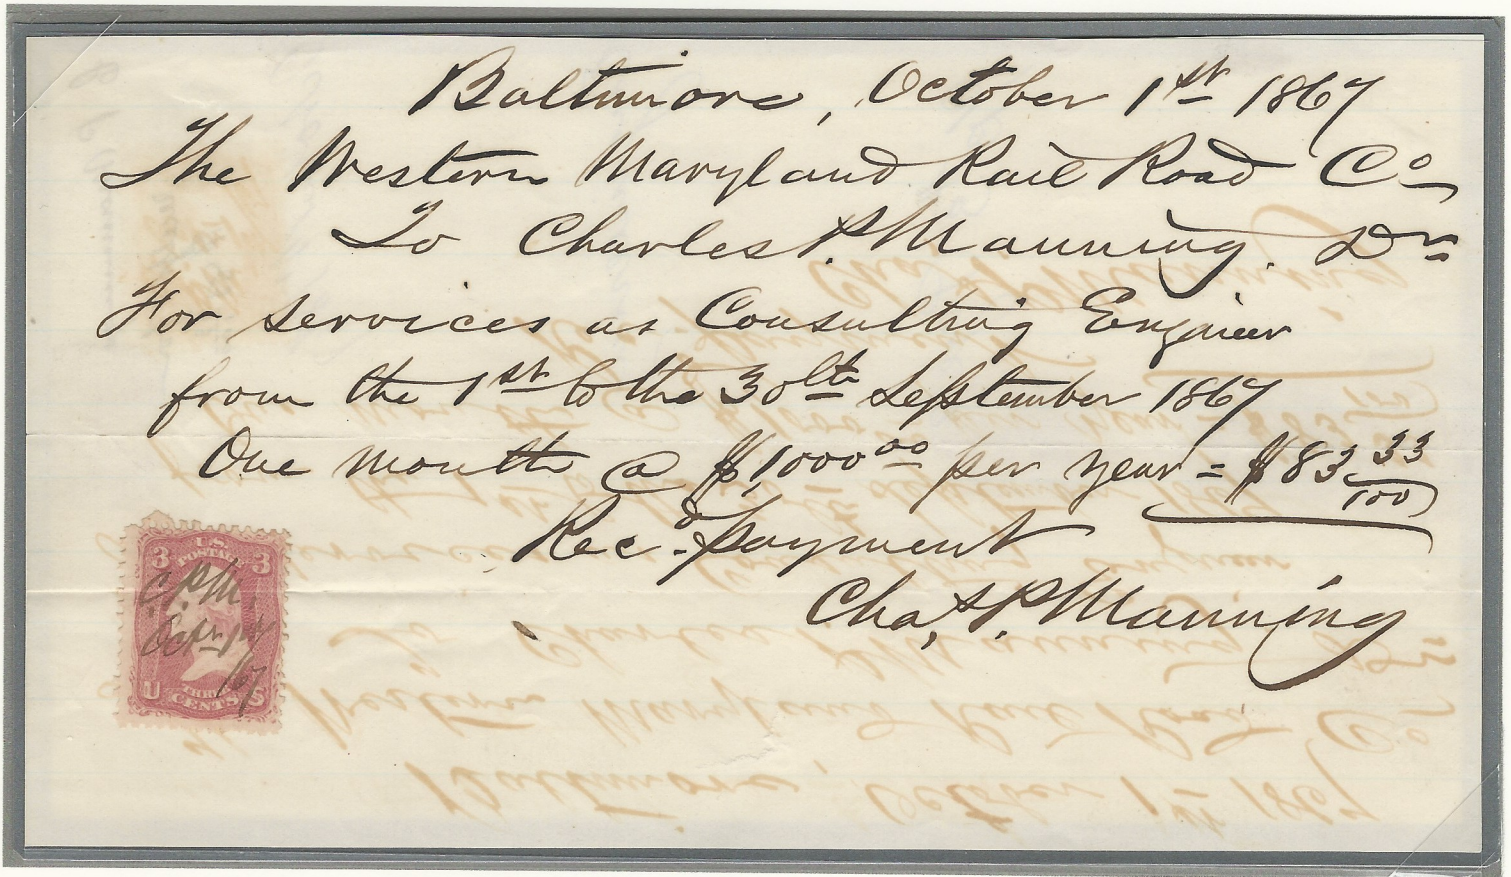 Baltimore, October 1st 1867
The Western Maryland Rail Road Co
To Charles P. Manning Dr
For services as Consulting Engineer
from the 1st to the 30th September 1867
One month @ $1000 00 per year = $83 33/100
Recd payment
Chas. P. Manning
3 U.S. POSTAGE 3
C.P.M.
Oct 1st
/67
U THREE CENTS S